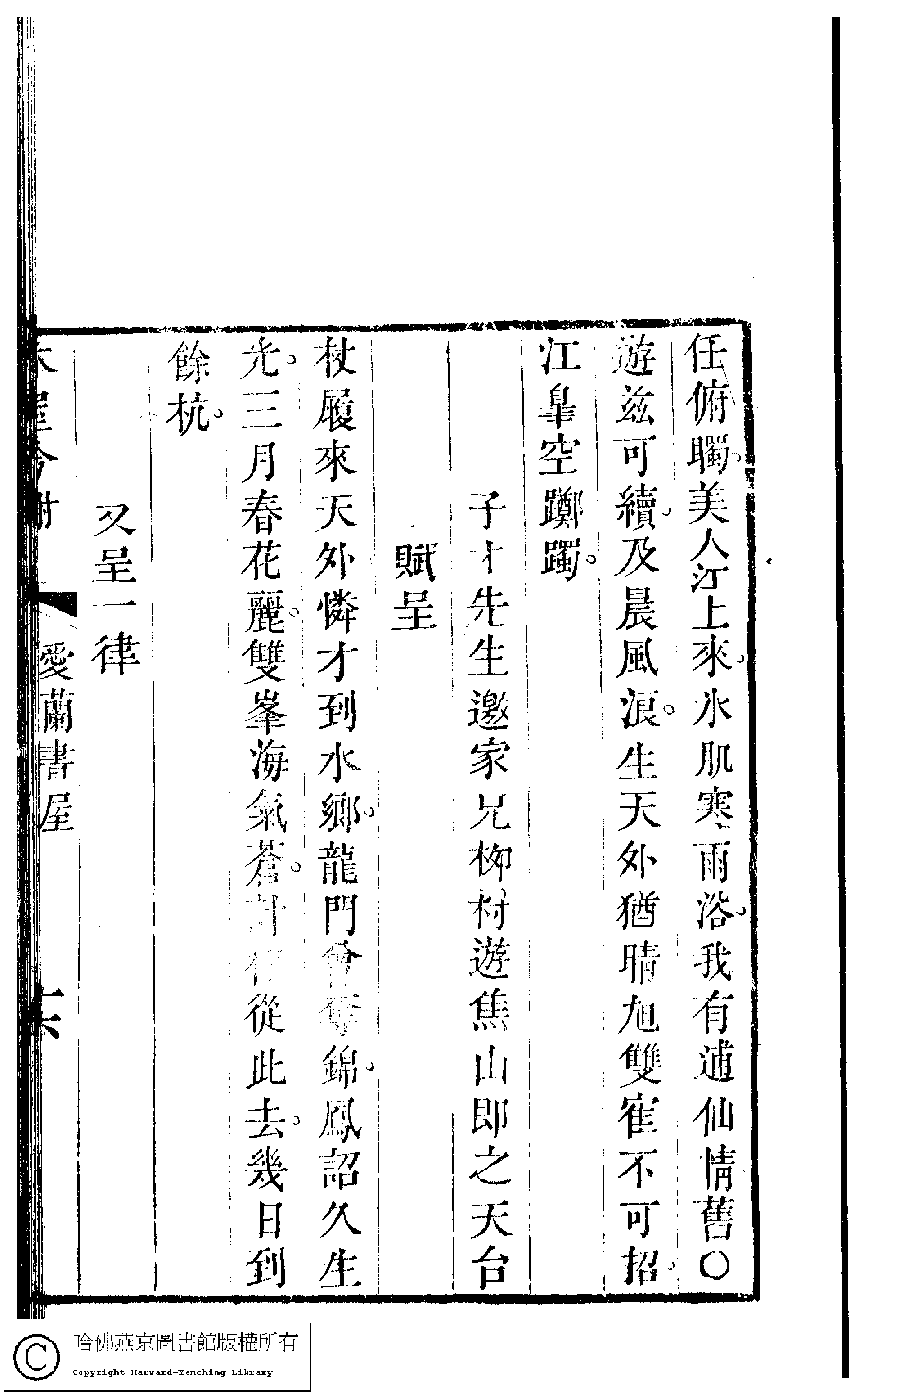 任俯矙美人江上來氷肌寒雨浴我有逋仙情舊〇
遊兹可續及晨風浪生天外猶晴旭雙寉不可招
江臯空躑躅
子才先生邀家兄栁村遊焦山即之天台
賦呈
杖履來天外憐才到水鄉龍門曾奪錦鳳詔久生
光三月春花麗雙峯海氣蒼計程從此去幾日到
餘杭
又呈一律
愛蘭書屋
十六
哈佛燕京圖書館版權所有
Copyright Harvard-Yenching Library